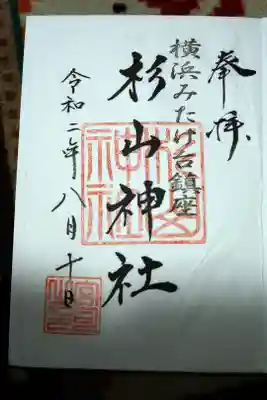 奉拝
横浜みたけ台鎮座
杉山神社
令和二年八月十日